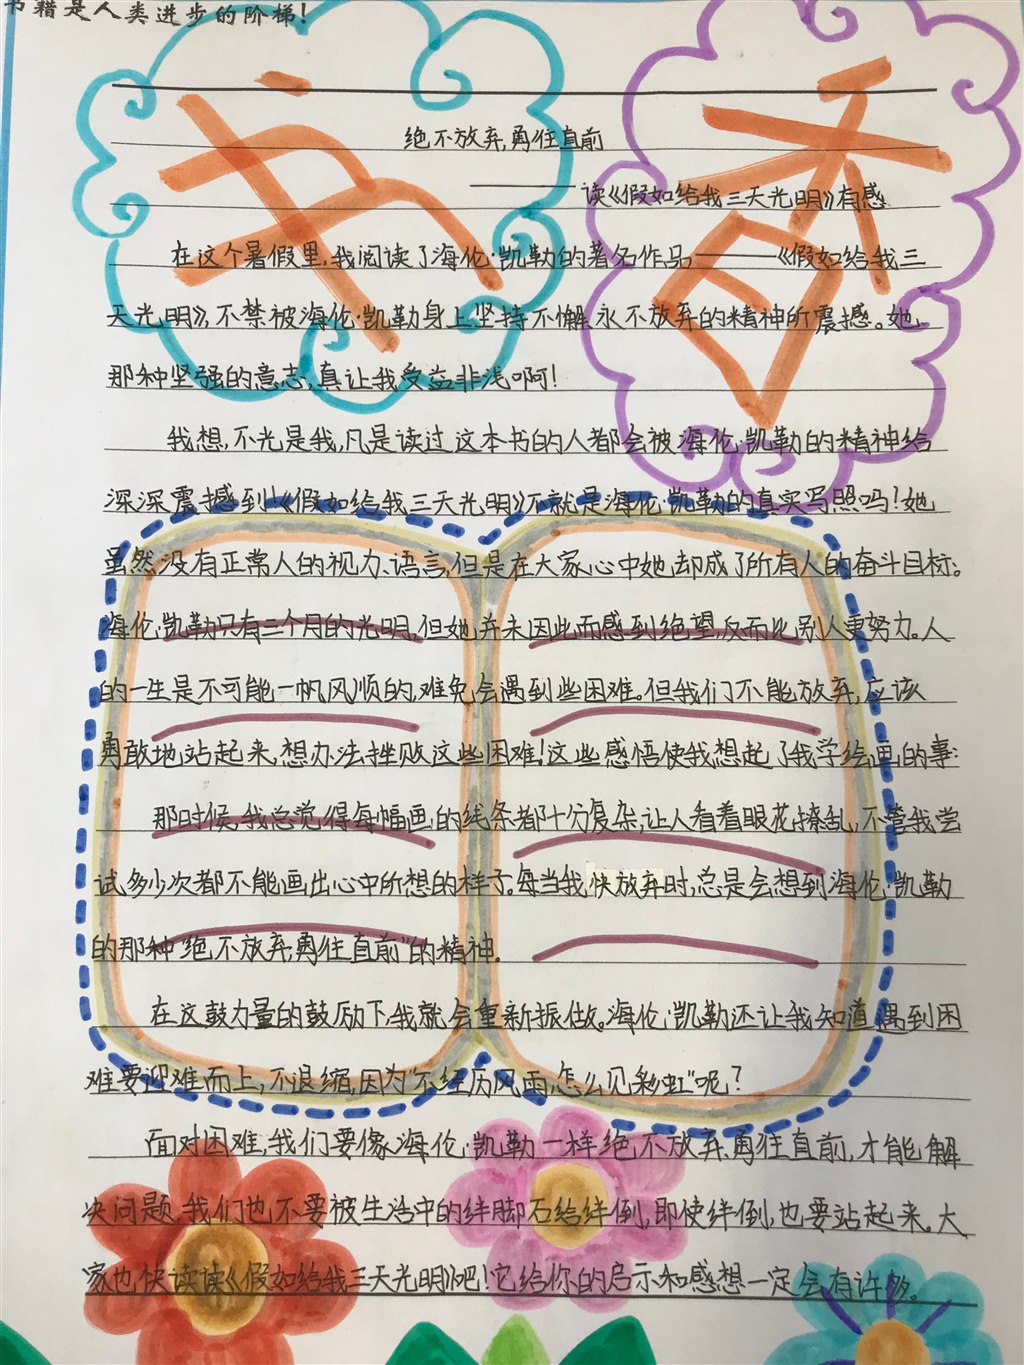 书籍是人类进步的阶梯!
书香
绝不放弃,勇往直前
———读《假如给我三天光明》有感
在这个暑假里,我阅读了海伦·凯勒的著名作品——《假如给我三
天光明》,不禁被海伦·凯勒身上坚持不懈、永不放弃的精神所震撼。她
那种坚强的意志,真让我受益非浅啊!
我想,不光是我,凡是读过这本书的人都会被海伦·凯勒的精神给
深深震撼到!《假如给我三天光明》不就是海伦·凯勒的真实写照吗!她
虽然没有正常人的视力、语言,但是在大家心中她却成了所有人的奋斗目标。
海伦·凯勒只有三个月的光明,但她并未因此而感到绝望,反而比别人更努力。人
的一生是不可能一帆风顺的,难免会遇到些困难。但我们不能放弃,应该
勇敢地站起来,想办法挫败这些困难!这些感悟使我想起了我学绘画的事:
那时候,我总觉得每幅画的线条都十分复杂,让人看着眼花撩乱,不管我尝
试多少次都不能画出心中所想的样子。每当我快放弃时,总是会想到海伦·凯勒
的那种“绝不放弃,勇往直前”的精神。
在这鼓力量的鼓励下,我就会重新振做。海伦·凯勒还让我知道遇到困
难要迎难而上,不退缩,因为“不经历风雨,怎么见彩虹”呢?
面对困难,我们要像海伦·凯勒一样绝不放弃,勇往直前,才能解
决问题,我们也不要被生活中的绊脚石给绊倒,即使绊倒,也要站起来。大
家也快读读《假如给我三天光明》吧!它给你的启示和感想一定会有许多。